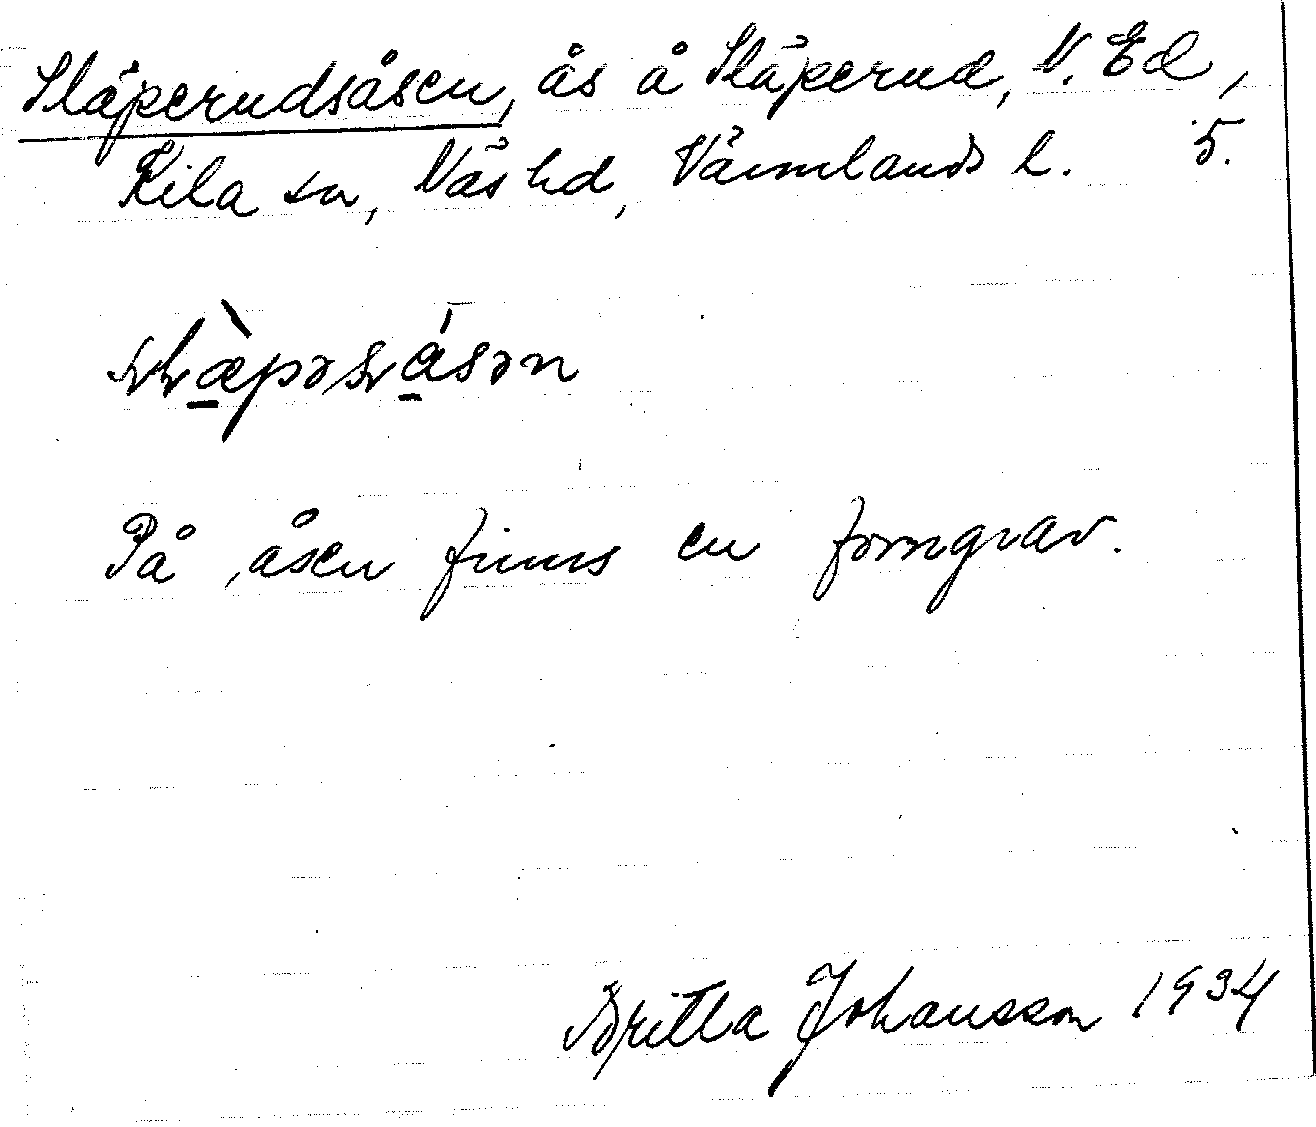 Släperudsåsen, ås å Släperud, N. Ed,
Kila sn, Näs hd, Värmlands l. 5.
På åsen finns en forngrav.
Britta Johansson 1934